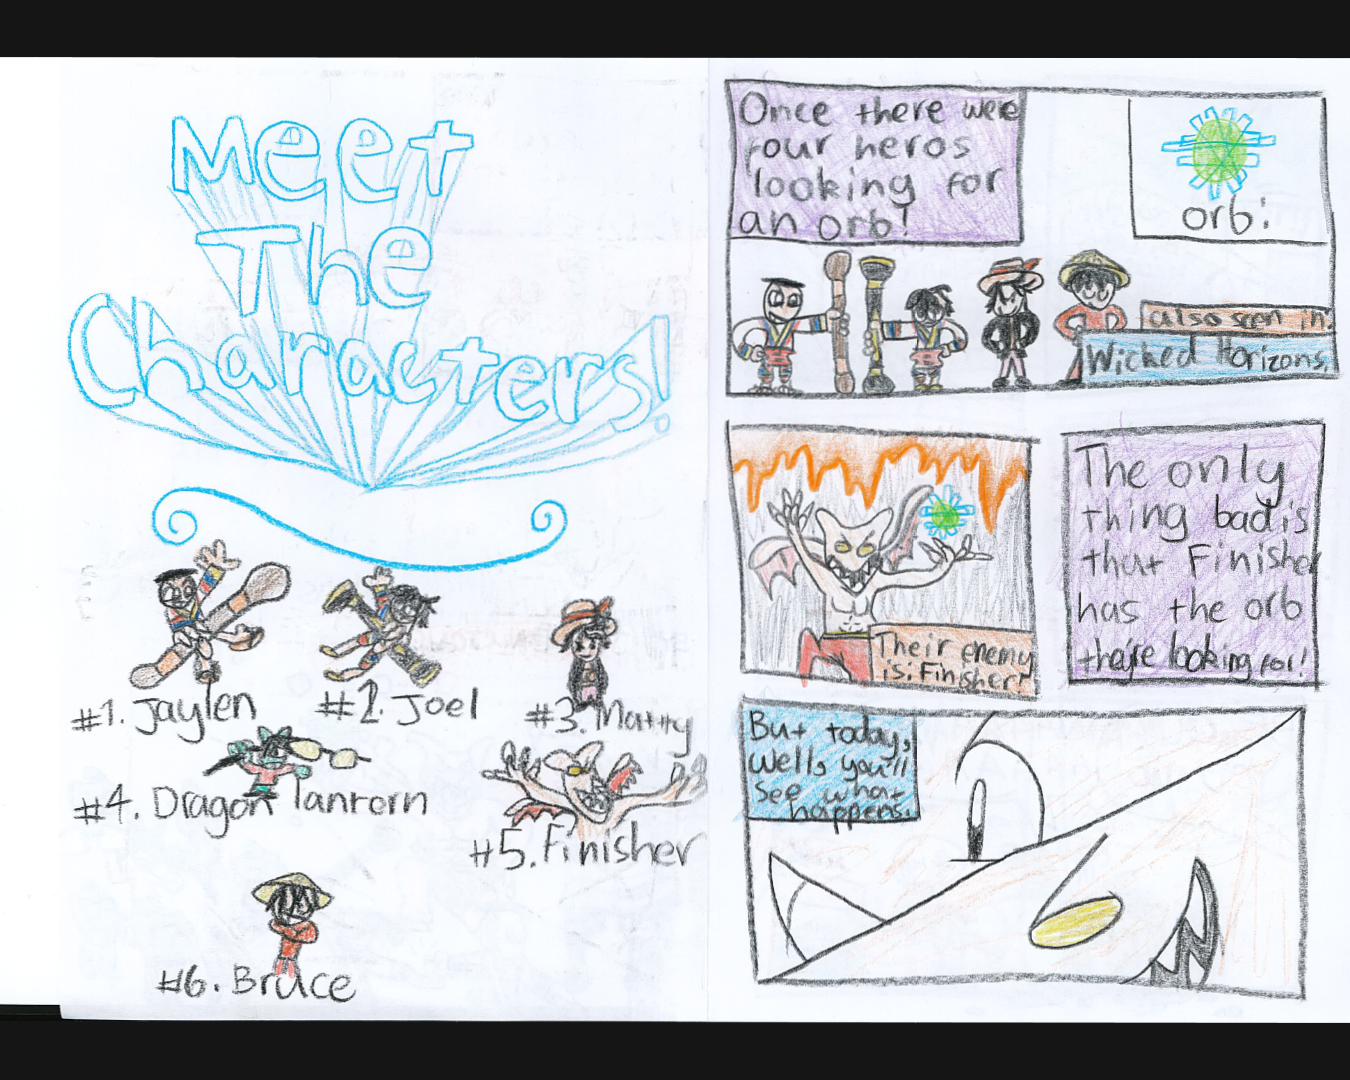 Meet
The
Characters!
#1. Jaylen
#2. Joel
#3. Matty
#4. Dragon Tanrorn
#5. Finisher
#6. Bruce
Once there were
four heros
looking for
an orb!
orb!
also seen in:
Wicked Horizons.
Their enemy
is: Finisher!
The only
thing bad is
that Finisher
has the orb
they're looking for!
But today,
wells you'll
see what
happens.